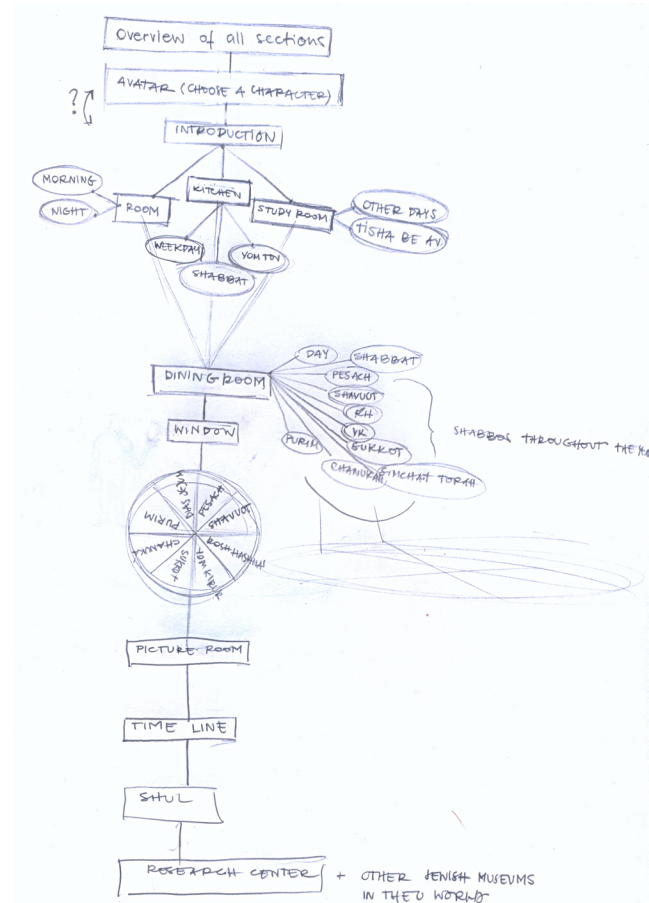 Overview of all sections
AVATAR (CHOOSE A CHARACTER)
?
INTRODUCTION
MORNING
NIGHT
ROOM
KITCHEN
STUDY ROOM
OTHER DAYS
TISHA BE AV
WEEKDAY
SHABBAT
YOM TOV
DINING ROOM
DAY
SHABBAT
PESACH
SHAVUOT
RH
YK
SUKKOT
SIMCHAT TORAH
CHANUKAH
PURIM
SHABBOS THROUGHOUT THE
WINDOW
WEEK DAYS
PESACH
SHAVUOT
ROSH HASHANAH
YOM KIPUR
SUKKOT
CHANUKA
PURIM
PICTURE ROOM
TIME LINE
SHUL
RESEARCH CENTER
+ OTHER JEWISH MUSEUMS
IN THE WORLD